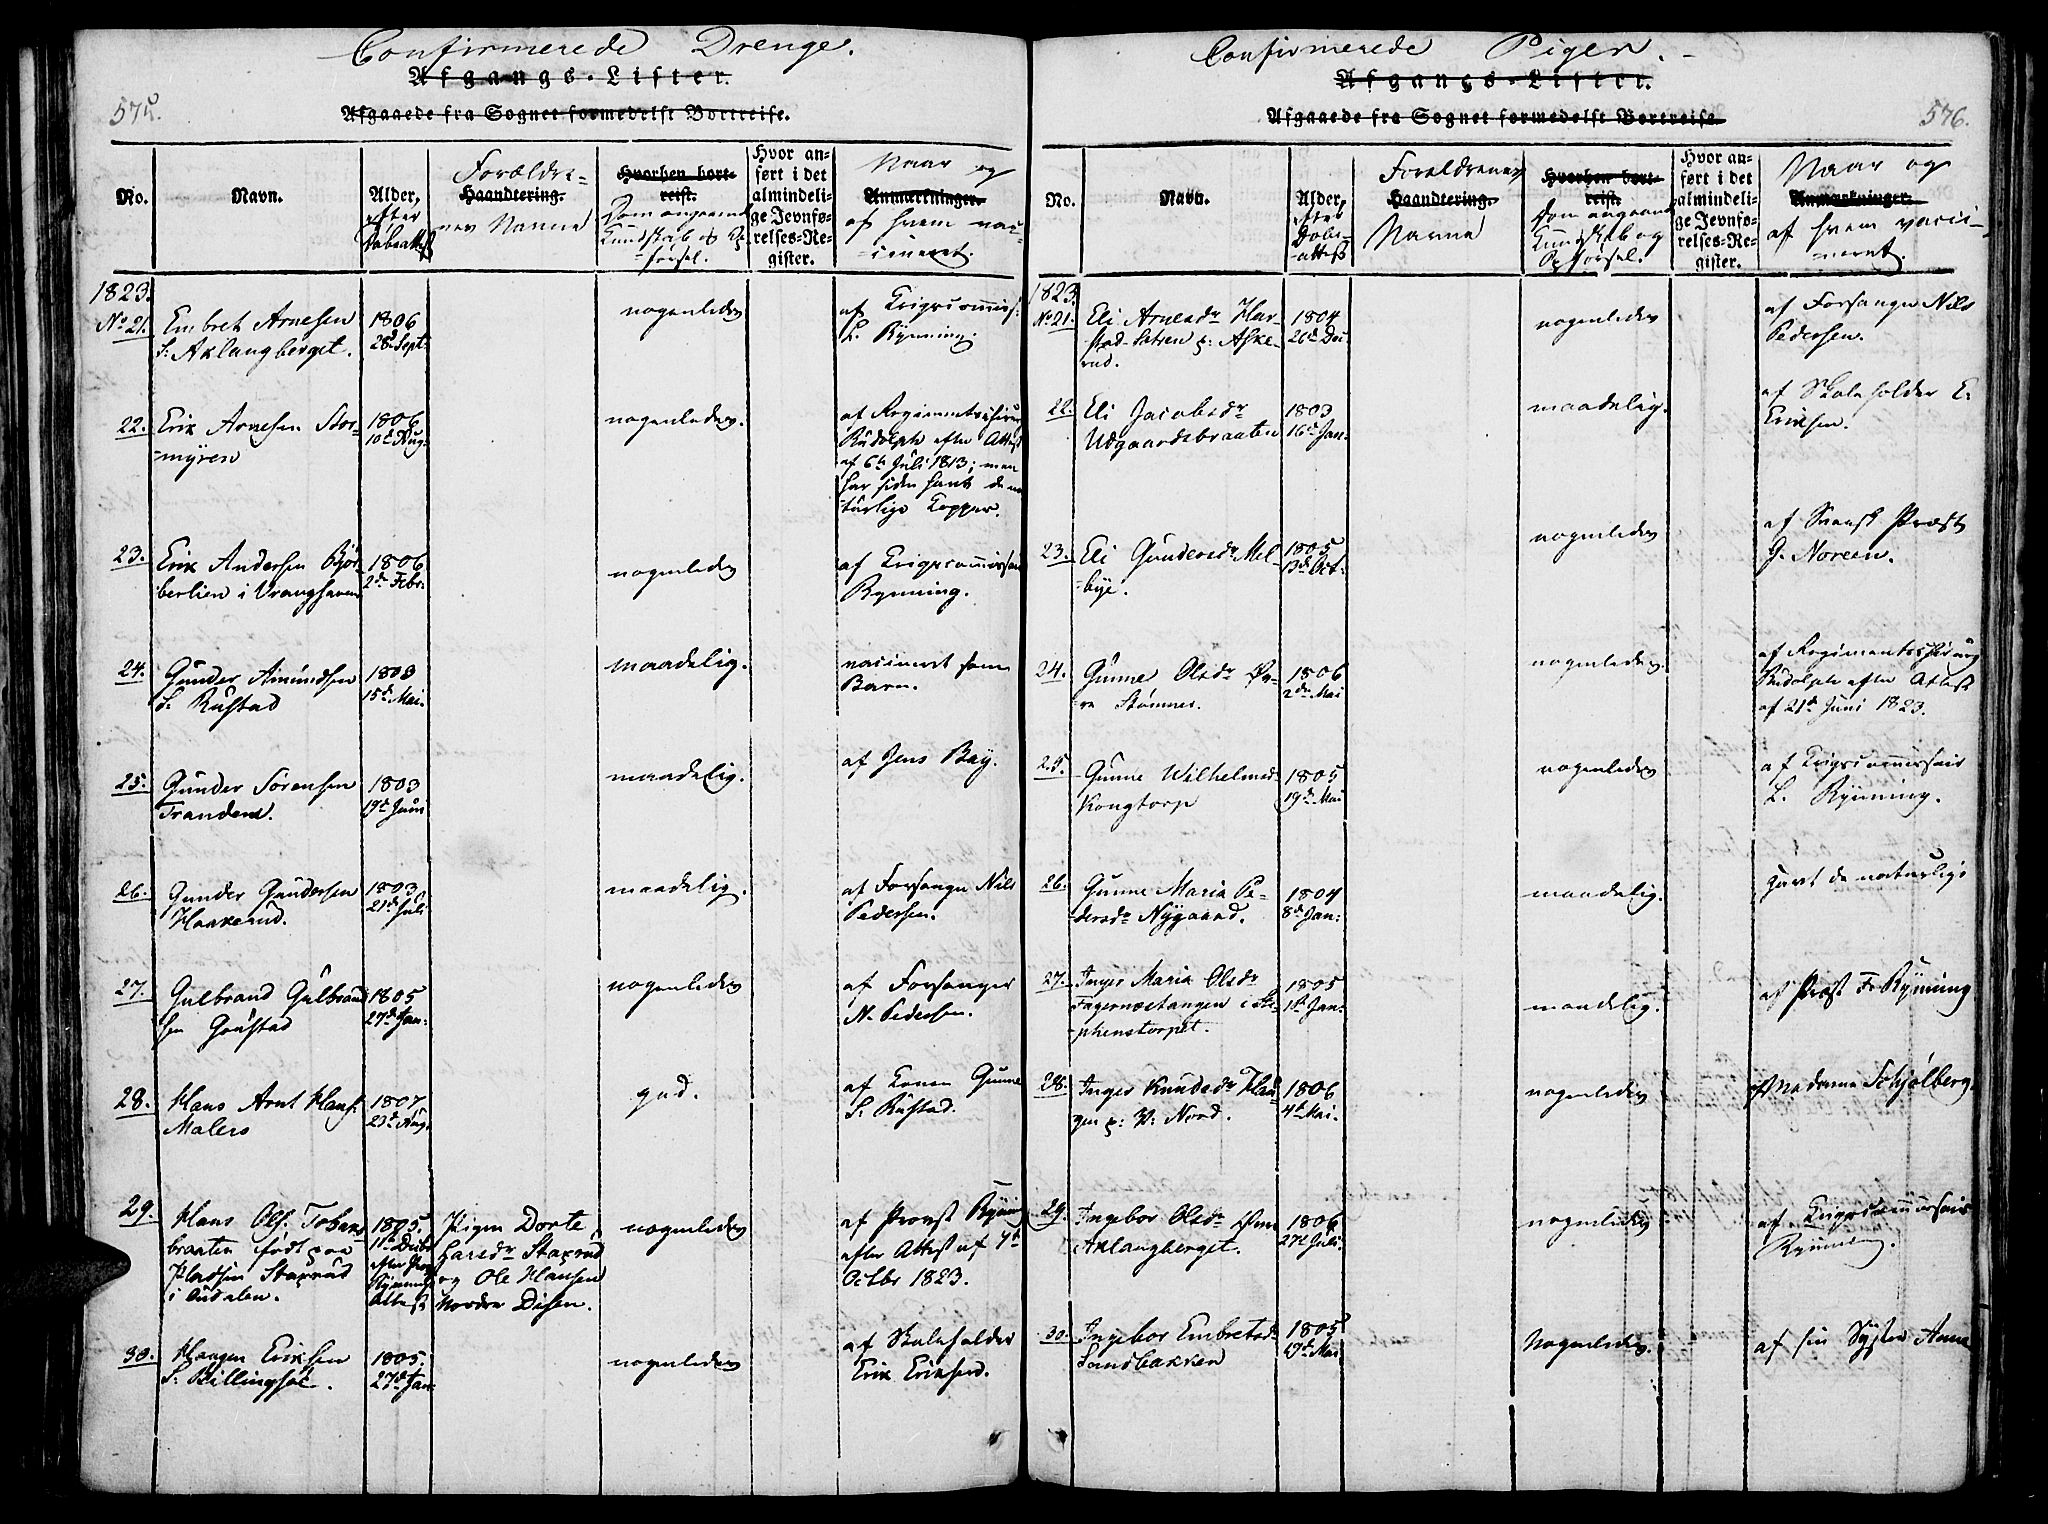 Confirmerede Drenge.
Afgangs-Lister.
575.
Afgaaede fra Sognet formedelst Bortreise.
No.
Navn.
Alder,
efter
Døbeattest
Forældre-
Haandtering.
nes Navne
Hvorhen bort-
reist.
Dom angaaende
Kundskab og Op-
førsel.
Hvor an-
ført i det
almindeli-
ge Jevnfø-
relses-Re-
gister.
Naar og
Anmærkninger.
af hvem vac-
cineret.
1823.
No 21.
Embret Arnesen
S: Aklangberget.
1806
28de Sept:
nogenledes
af Krigscommiss:
L. Rynning.
22.
Erik Arnesen Stor-
myren
1806
10de Aug:
nogenledes.
af Regimentschirurg
Rudolph efter Attest
af 6te Juli 1813; men
har siden havt de na-
turlige Kopper.
23.
Erik Andersen Bjør-
berlien i Vranghaven
1806
2den Febr:
nogenledes
af Krigscommissair
Rynning.
24.
Gunder Amundsen
S. Rustad
1803
15de Mai.
maadelig.
vaccineret som
Barn.
25.
Gunder Sørensen
Trandem.
1803
19de Juni
maadelig.
af Jens Bay.
26.
Gunder Gundersen
Haakerud.
1803
21de Juli
maadelig.
af Forsanger Nils
Pedersen.
27.
Gulbrand Gulbrand-
sen Grustad
1805
27de Jan:
nogenledes
af Forsanger
N. Pedersen.
28.
Hans Arnt Hans:
Malers
1807.
23de Aug.
god.
af Konen Gunne
S. Rustad.
29.
Hans Ols:
braaten født paa
Pladsen Staxrud
i Oudalen.
1805.
11te Decbr
efter Prov
Rynnings
Attest
Pigen Dorte
Larsdr Staxrud
og Ole Hansen
Nordre Disen.
nogenledes
af Provst Rynning
efter Attest af 4de
Octbr 1823.
30.
Haagen Eriksen
S. Billingsøe.
1805.
27de Jan:
nogenledes
af Skoleholder
Erik Eriksen.
Confirmerede Piger.
Afgangs-Lister.
576.
Afgaaede fra Sognet formedelst Bortreise.
No.
Navn.
Alder,
efter
Døbe-
attest
Forældrenes
Haandtering.
Navne
Hvorhen bort-
reist.
Dom angaaende
Kundskab og
Opførsel.
Hvor an-
ført i det
almindeli-
ge Jevnfø-
relses-Re-
gister.
Naar og
Anmærkninger.
af hvem vacci-
neret.
1823.
No 21.
Eli Arnesdr Har-
stad-Sætren p: Aske-
rud.
1804
26de Dec:
nogenledes
af Forsanger Nils
Pedersen.
22.
Eli Jacobsdr
Udgaardsbraaten
1803
16de Jan:
maadelig.
af Skoleholder E.
Eriksen.
23.
Eli Gundersdr Mel-
bye.
1805
13de Oct:
nogenledes
af Svensk Præst
G. Noreen.
24.
Gunne Olsdr Øv-
re Stømner.
1806
2den Mai
nogenledes.
af Regimentschirurg
Rudolph efter Attest
af 21de Juni 1823.
25.
Gunne Wilhelmsd
Kongtorp
1805
19de Mai
nogenledes
af Krigscommissair
L. Rynning.
26.
Gunne Maria Pe-
dersdr Nygaard.
1804
8de Jan:
maadelig.
havt de naturlige
27.
Inger Maria Olsdr
Fagernæstangen i Ste-
phenstorpet.
1805
1ste Jan:
maadelig.
af Præst Fr Rynning
28.
Inger Knudsdr Hau-
gen p: V: Nord.
1806
4de Mai.
nogenledes
af Madame Schjølberg.
29.
Ingebor Olsdr Øvre
Aklangberget.
1806
27de Juli.
nogenledes
af Krigscommissair
Rynning.
30.
Ingebor Embretsdr
Sandbakken
1805
19de Mai
Nogenledes.
af sin Syster Anne